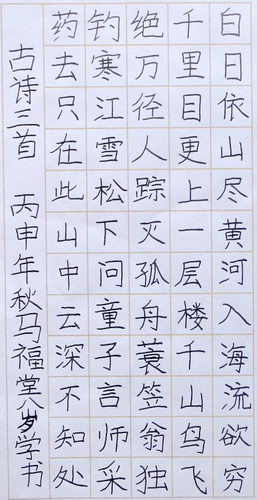 白日依山尽黄河入海流欲穷
千里目更上一层楼千山鸟飞
绝万径人踪灭孤舟蓑笠翁独
钓寒江雪松下问童子言师采
药去只在此山中云深不知处
古诗三首 丙申年秋马福堂八岁学书